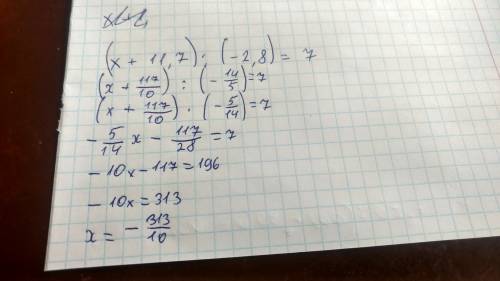 (x + 11,7) : (-2,8) = 7
(x + 117/10) : (-14/5) = 7
(x + 117/10) · (-5/14) = 7
- 5/14 x - 117/28 = 7
- 10x - 117 = 196
- 10x = 313
x = - 313/10